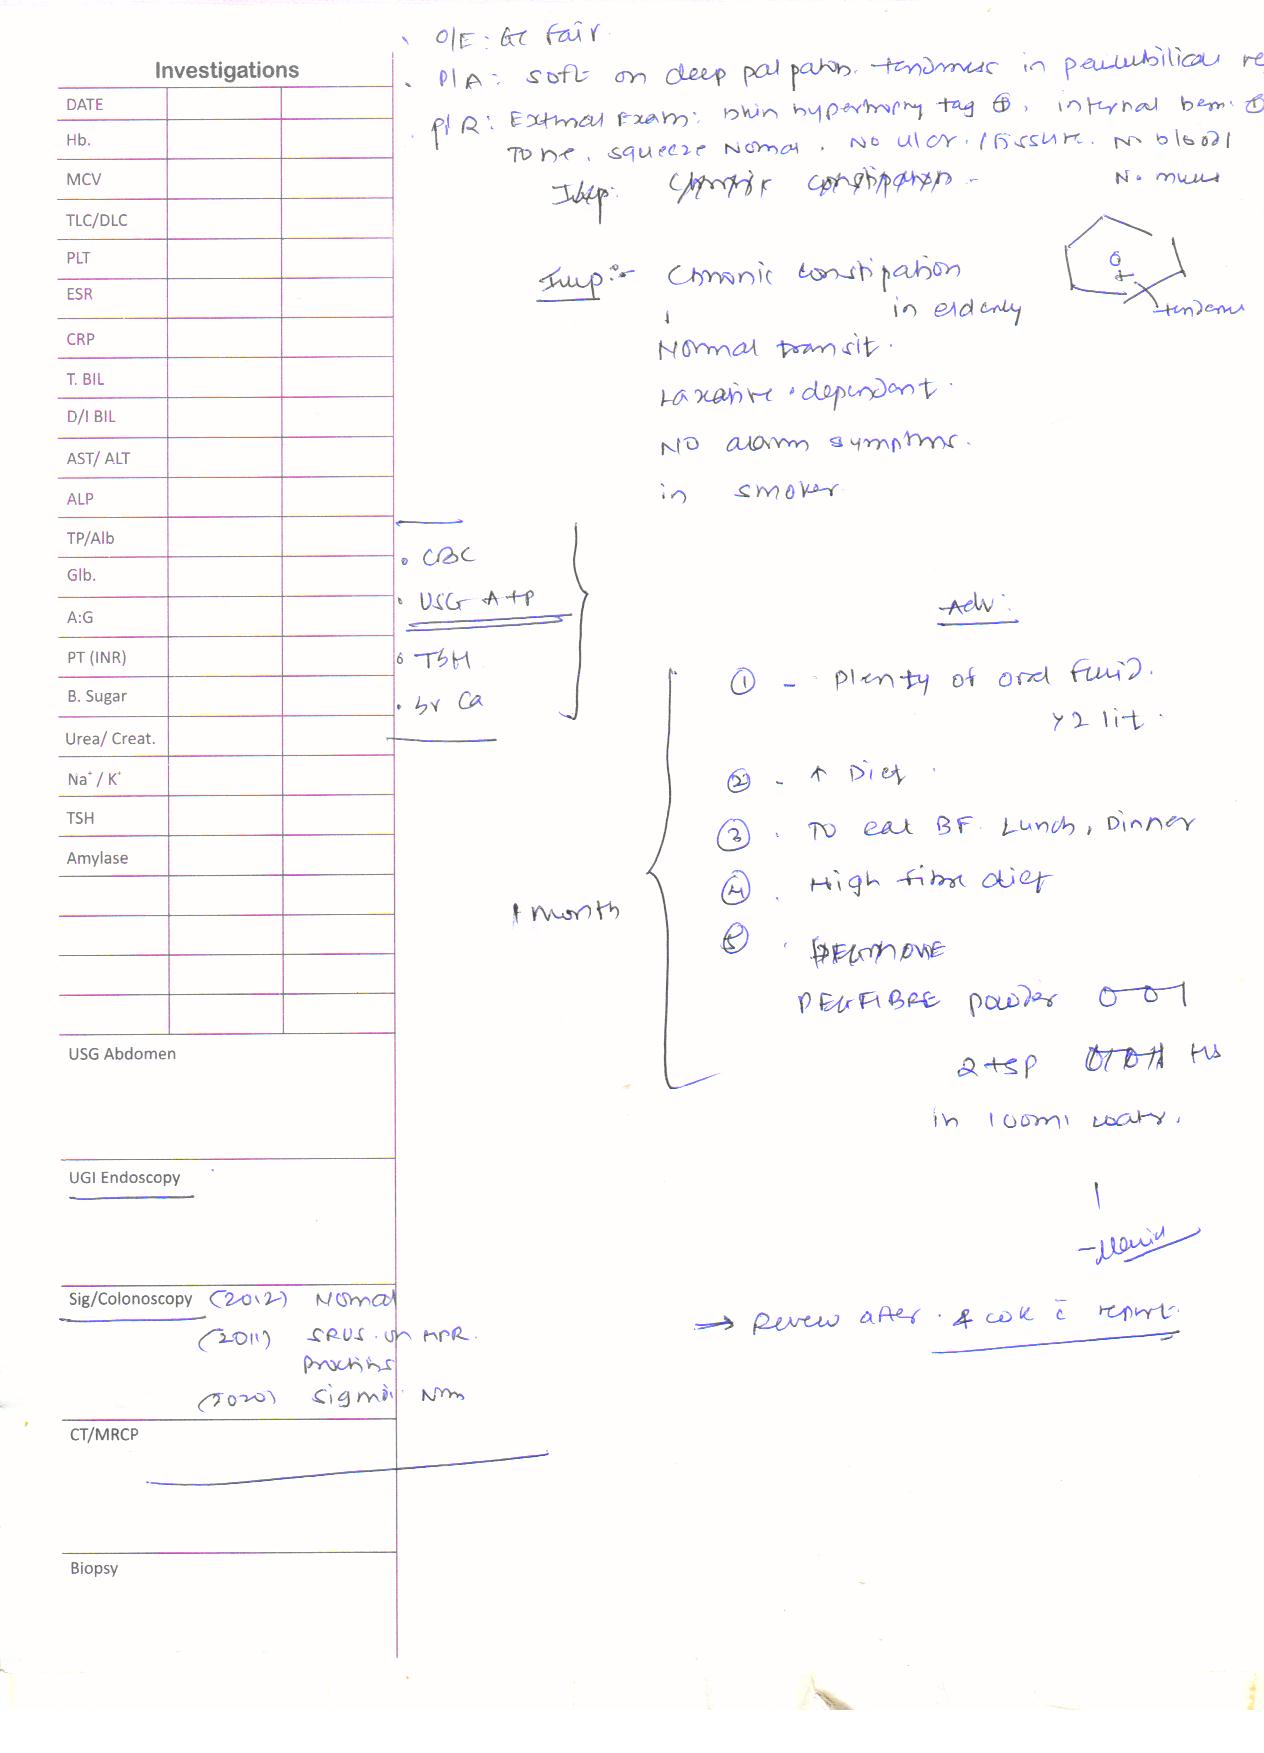 O/E : GC Fair
P/A : Soft on deep palpation. tenderness in periumbilical re
P/R : External Exam : skin hypertrophy tag ⊕, internal hem. ⊕
Tone, squeeze Normal, No ulcer / fissure. No blood
No mucus
Imp: Chronic constipation -
Imp :- Chronic constipation
in elderly
tenderness
Normal transit.
Laxative dependant.
NO alarm symptoms.
in smoker
Investigations
DATE
Hb.
MCV
TLC/DLC
PLT
ESR
CRP
T. BIL
D/I BIL
AST/ ALT
ALP
TP/Alb
Glb.
A:G
PT (INR)
B. Sugar
Urea/ Creat.
Na⁺ / K⁺
TSH
Amylase
• CBC
• USG A+P
• TSH
• Sr Ca
Adv :
① - Plenty of oral fluid.
>2 lit.
② - ↑ Diet.
③ . To eat BF. Lunch, Dinner
④ . High fibre diet
⑤ . PEGMOVE
1 month
PEGFIBRE powder 0-01
2 tsp HS
in 100ml water.
USG Abdomen
UGI Endoscopy
Sig/Colonoscopy (2012) Normal
(2011) SRUS. on HPR.
Proctitis
(2020) Sigmoi. Nm
→ Review after. 4 wk c̄ report.
CT/MRCP
Biopsy